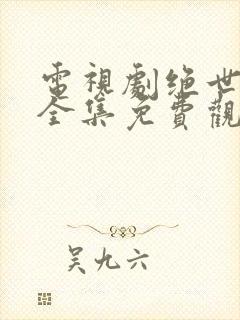 電視劇绝世
全集免費觀
吴九六